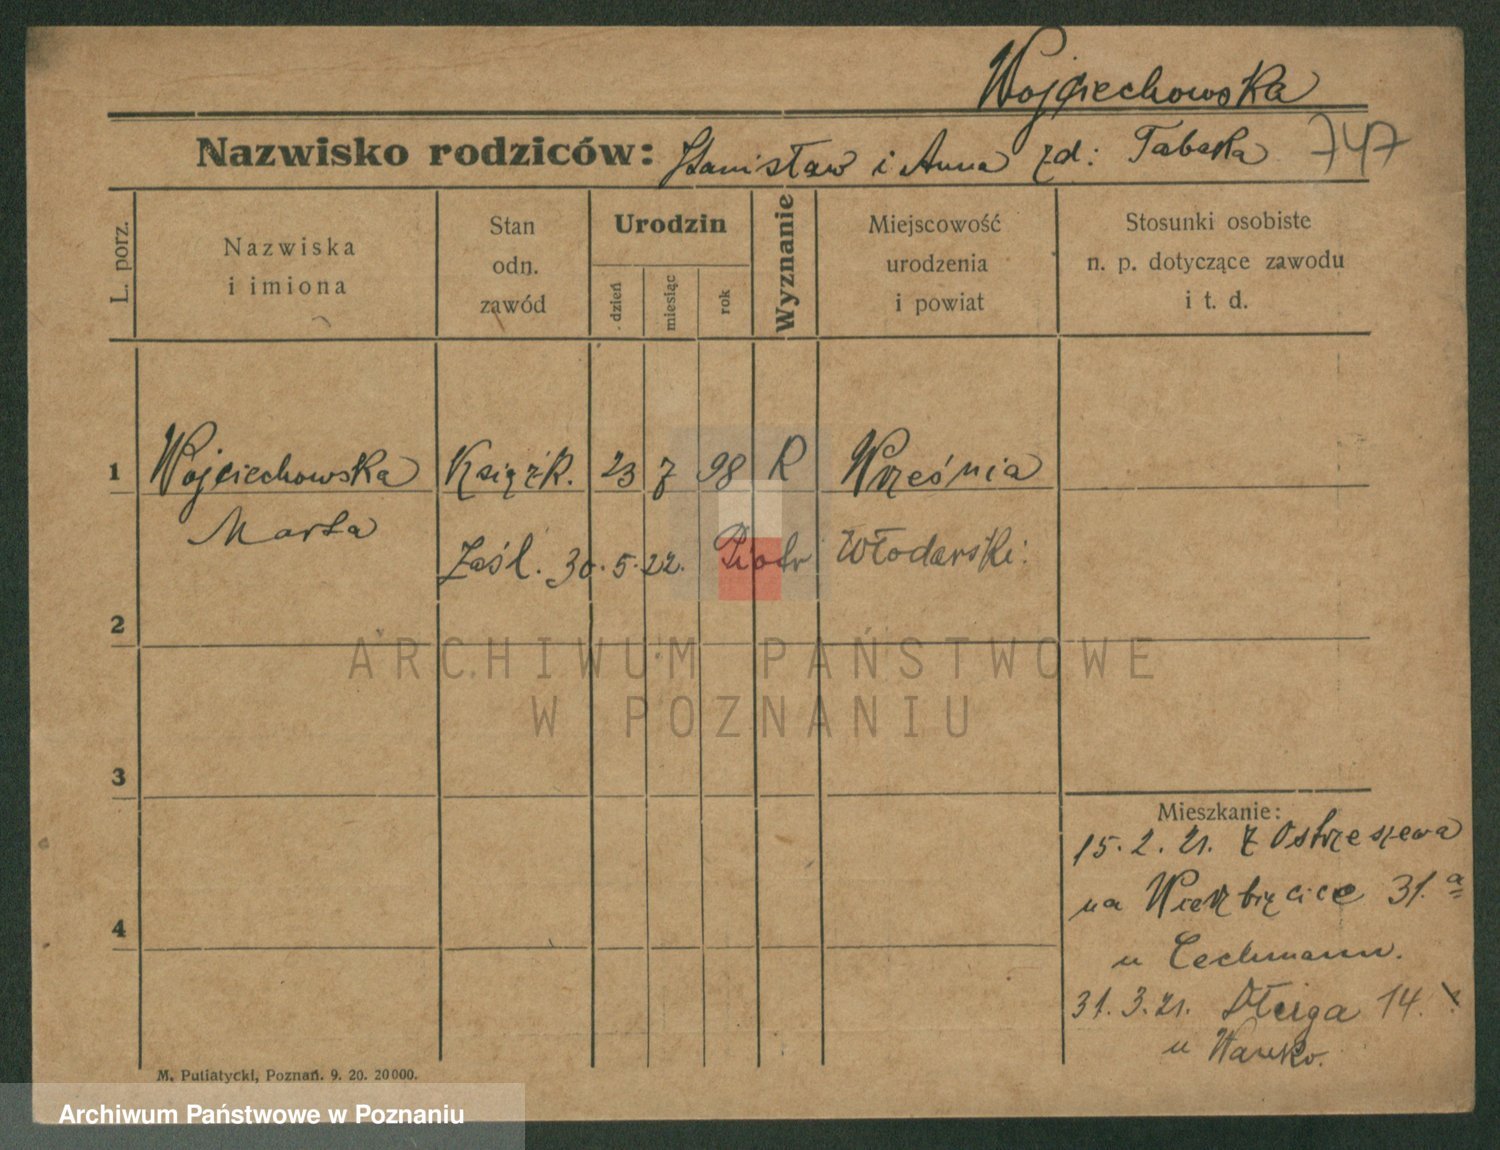 Wojciechowska
Nazwisko rodziców: Stanisław i Anna zd: Tabaska 747
L. porz.
Nazwiska
i imiona
Stan
odn.
zawód
Urodzin
dzień
miesiąc
rok
Wyznanie
Miejscowość
urodzenia
i powiat
Stosunki osobiste
n. p. dotyczące zawodu
i t. d.
1 Wojciechowska Książk. 23 7 98 R Września
Marta
Zaśl. 30.5.22. Piotr Włodarski.
2
ARCHIWUM PAŃSTWOWE
W POZNANIU
3
Mieszkanie:
15.2.21. z Ostrzeszewa
na Wierzbięcice 31.a
4
u Cechmann.
31.3.21. Długa 14.
u
M. Putiatycki, Poznań. 9. 20. 20000.
Archiwum Państwowe w Poznaniu